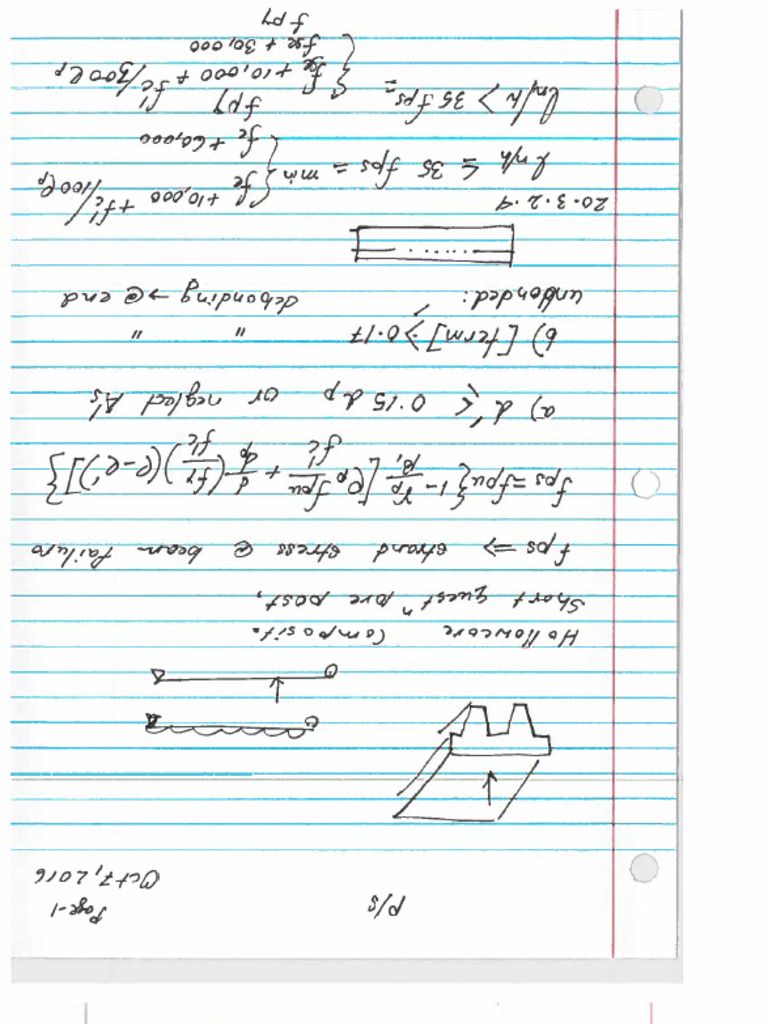 P/S
Page-1
Oct 7, 2016
Hollowcore Composit.
Short questⁿ pre post,
fps ⇒ strand stress @ beam failure
fps = fpu{1 - γp/β₁ [ρp fpu/f'c + d/dp (fy/f'c)(ρ-ρ')]}
a) d' ≤ 0.15 dp or neglect A's
b) [term] ≥ 0.17 " "
unbonded: debonding → @ end
20.3.2.4
ln/h ≤ 35 fps = min { fse + 10,000 + f'c/100ρp
fse + 60,000
fpy
ln/h > 35 fps = { fse + 10,000 + f'c/300ρp
fse + 30,000
fpy